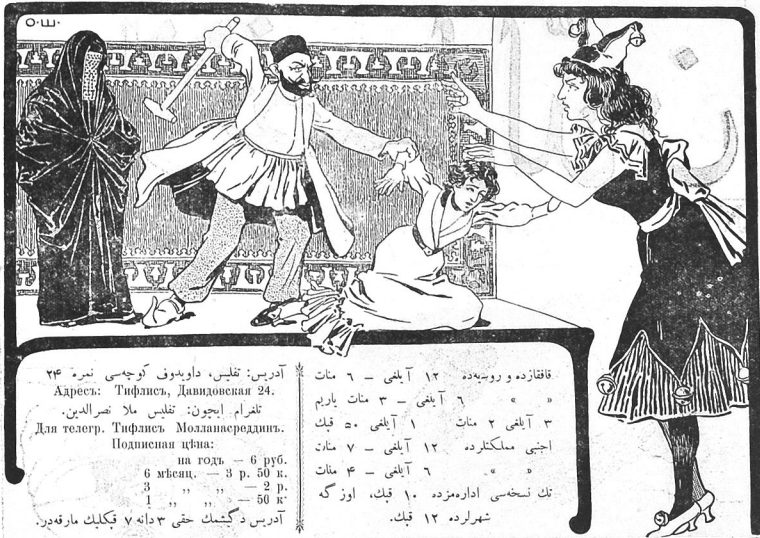 О·Ш·
آدریس: تفلیس، داویدوف کوچه‌سی نمره ۲۴
Адресъ: Тифлисъ, Давидовская 24.
تلغرام ایچون: تفلیس ملا نصرالدین.
Для телегр. Тифлисъ Молланасреддинъ.
Подписная цѣна:
на годъ — 6 руб.
6 мѣсяц. — 3 р. 50 к.
3 „ „ — 2 р.
1 „ „ — 50 к
آدریس دگیشمك حقی ۳ دانه ۷ قپکلیك مارقه‌در.
قافقازده و روسیه‌ده ۱۲ آیلغی — ٦ منات
» » ٦ آیلغی — ۳ منات یاریم
۳ آیلغی ۲ منات ۱ آیلغی ۵۰ قپك
اجنبی مملکتلرده ۱۲ آیلغی — ۷ منات
» » ٦ آیلغی — ۴ منات
تك نسخه‌سی اداره‌مزده ۱۰ قپك، اوزگه
شهرلرده ۱۲ قپك.